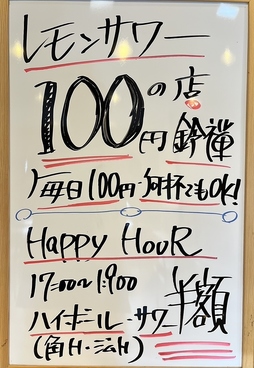 レモンサワー
100円の店
鈴禅
毎日100円・何杯でもOK!
Happy HouR
17:00〜19:00
ハイボール・サワー 半額
(角H・